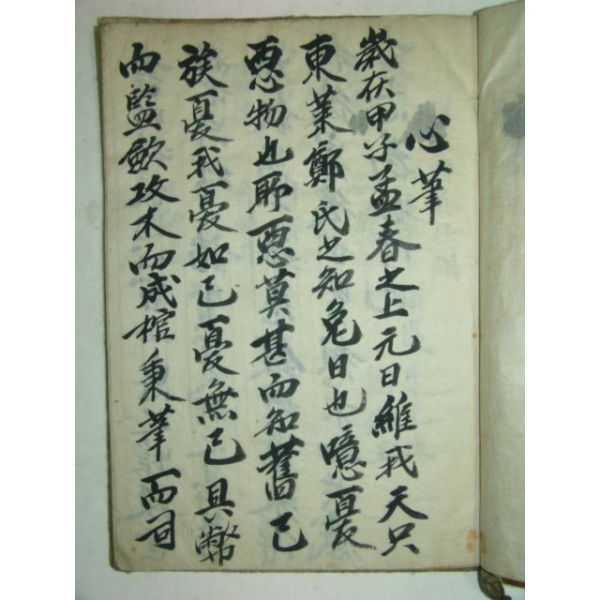 心筆
歲在甲子孟春之上元日維我天只
東萊鄭氏之知免日也噫憂
惡物也耶惡莫甚而知舊已
族憂我憂如己憂無已具幣
而監斂攻木而成棺秉筆而司